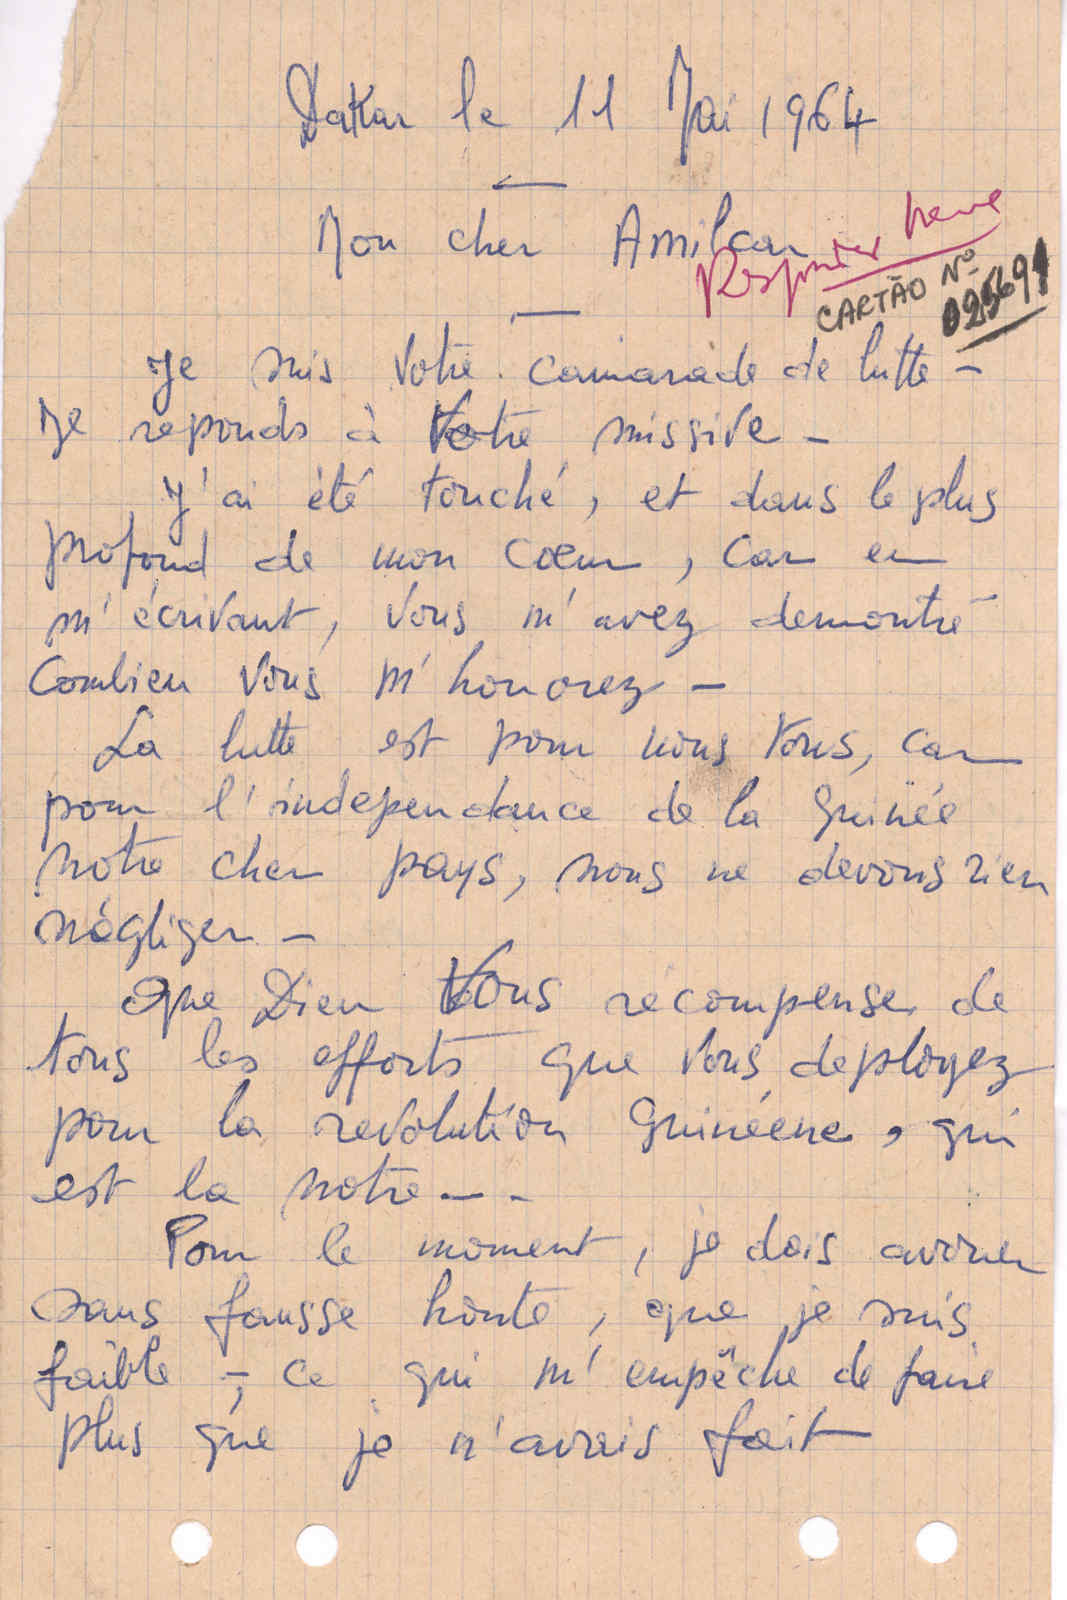 Dakar le 11 Mai 1964
Mon cher Amilcar
Responder
CARTÃO Nº
Je suis votre camarade de lutte -
Je reponds à Votre missive -
J'ai été touché, et dans le plus
profond de mon cœur, car en
m'écrivant, vous m'avez demontré
Combien Vous m'honorez -
La lutte est pour nous tous, car
pour l'independance de la Guinée
notre cher pays, nous ne devons rien
négliger -
Que Dieu Vous recompense de
tous les efforts que vous deployez
pour la revolution Guinéene, qui
est la notre - -
Pour le moment, je dois avouer
sans fausse honte, que je suis
faible -, ce qui m'empêche de faire
plus que je n'avais fait